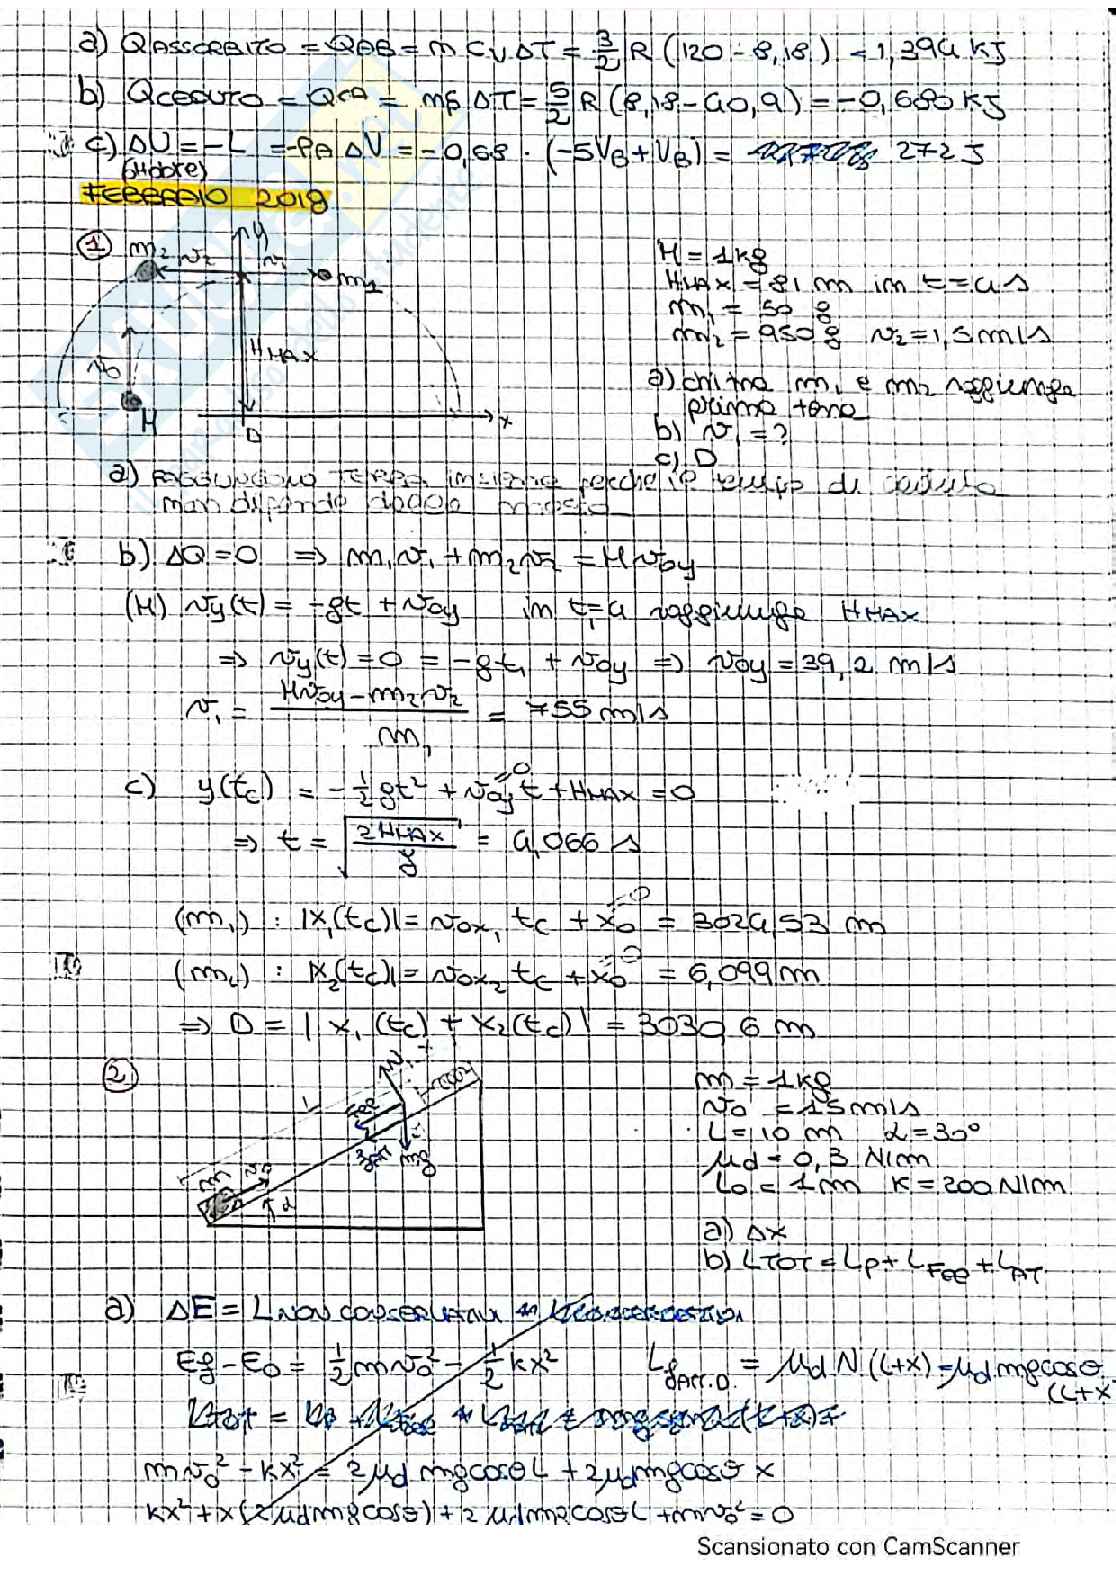 a) QASSORBITO = QAB = m CV ΔT = 3/2 R (120 - 8,18) = 1,394 kJ
b) QCEDUTO = QCA = m ΔT = 5/2 R (8,18 - 40,9) = -0,680 kJ
c) ΔU = -L = -PA ΔV = -0,68 · (-5VB + VB) = 272 J
(ottobre)
FEBBRAIO 2018
1
m2 v2 y v1 m1
HMAX
v0
M D x
M = 1 kg
HMAX = 81 m in t = 4 s
m1 = 50 g
m2 = 950 g v2 = 1,5 m/s
a) chi tra m1 e m2 raggiunge
prima terra
b) v1 = ?
c) D
a) RAGGIUNGONO TERRA insieme perché il tempo di caduta
non dipende dalla massa
b) ΔQ = 0 ⇒ m1v1 + m2v2 = Mv0y
(M) vy(t) = -gt + v0y in t1 = 4 raggiunge HMAX
⇒ vy(t) = 0 = -gt1 + v0y ⇒ v0y = 39,2 m/s
v1 = (Mv0y - m2v2) / m1 = 755 m/s
c) y(tc) = -1/2 gt² + v0y t + HMAX = 0
=0
⇒ t = √(2HMAX / g) = 4,066 s
(m1) : |x1(tc)| = v0x1 tc + x0 = 3024,53 m
=0
(m2) : |x2(tc)| = v0x2 tc + x0 = 6,099 m
=0
⇒ D = | x1(tc) + x2(tc) | = 3030,6 m
2
L
m v0 α mg
m = 1 kg
v0 = 15 m/s
L = 10 m α = 30°
μd = 0,3 N/m
L0 = 1 m K = 200 N/m
a) Δx
b) LTOT = LP + LFee + LAT
a) ΔE = LNON CONSERVATIVI
Ef - E0 = 1/2 mv0² - 1/2 kx² LfATT.D. = μd N (L+x) = μd mg cosθ
(L+x
mv0² - kx² = 2μd mg cosθ L + 2μd mg cosθ x
kx² + x(2μd mg cosθ) + 2μd mg cosθ L + mv0² = 0
Scansionato con CamScanner